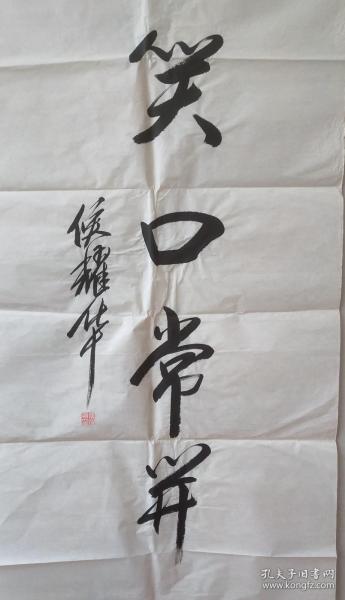 笑口常开
侯耀华
孔夫子旧书网